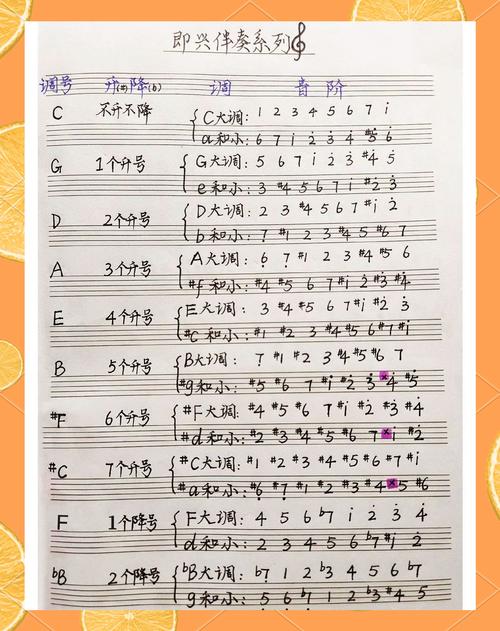 即兴伴奏系列
调号 升(#)降(b) 调 音阶
C 不升不降 C大调: 1 2 3 4 5 6 7 i
a和小: 6 7 i 2̇ 3̇ 4̇ #5̇ 6̇
G 1个升号 G大调: 5 6 7 i 2̇ 3̇ #4̇ 5̇
e和小: 3 #4 5 6 7 i #2̇ 3̇
D 2个升号 D大调: 2 3 #4 5 6 7 #i 2̇
b和小: 7̣ #1 2 3 #4 5 #6 7
A 3个升号 A大调: 6̣ 7̣ #1 2 3 #4 #5 6
#f和小: #4 #5 6 7 #i 2̇ #3̇ #4̇
E 4个升号 E大调: 3 #4 #5 6 7 #i #2̇ 3̇
#c和小: #1 #2 3 #4 #5 6 #7 #i
B 5个升号 B大调: 7̣ #1 #2 3 #4 #5 #6 7
#g和小: #5 #6 7 #i #2̇ 3̇ x4̇ #5̇
#F 6个升号 #F大调: #4 #5 #6 7 #i #2̇ #3̇ #4̇
#d和小: #2 #3 #4 #5 #6 7 xi #2̇
#C 7个升号 #C大调: #1 #2 #3 #4 #5 #6 #7 #i
#a和小: #6̣ #7̣ #1 #2 #3 #4 x5 #6
F 1个降号 F大调: 4 5 6 b7 i 2̇ 3̇ 4̇
d和小: 2 3 4 5 6 b7 #i 2̇
bB 2个降号 bB大调: b7̣ 1 2 b3 4 5 6 b7
g和小: 5̣ 6̣ b7̣ 1 2 b3 #4 5